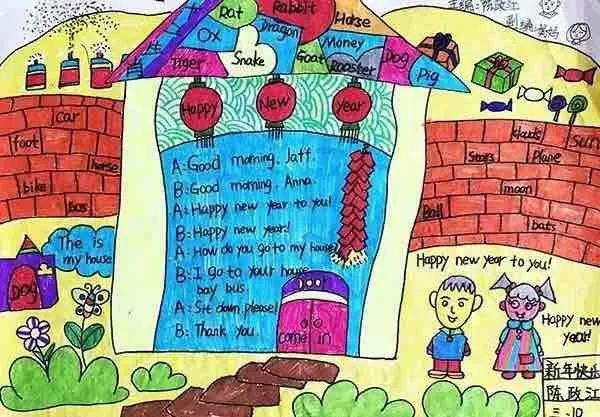 Rat
Rabbit
Horse
Ox
Dragon
Money
Tiger
Snake
Goat
Roaster
Dog
Pig
主编:陈政江
副编:
Happy
New
year
A: Good morning, Jaff.
B: Good morning, Anna.
A: Happy new year to you!
B: Happy new year!
A: How do you go to my house
B: I go to your house
bay bus.
A: Sit down, please!
B: Thank you.
come in
car
foot
horse
bike
bas
The is
my house
DOG
clouds
Sun
Stars
Plane
moon
Ball
bats
Happy new year to you!
Happy new
year!
新年快乐
陈政江
三.10